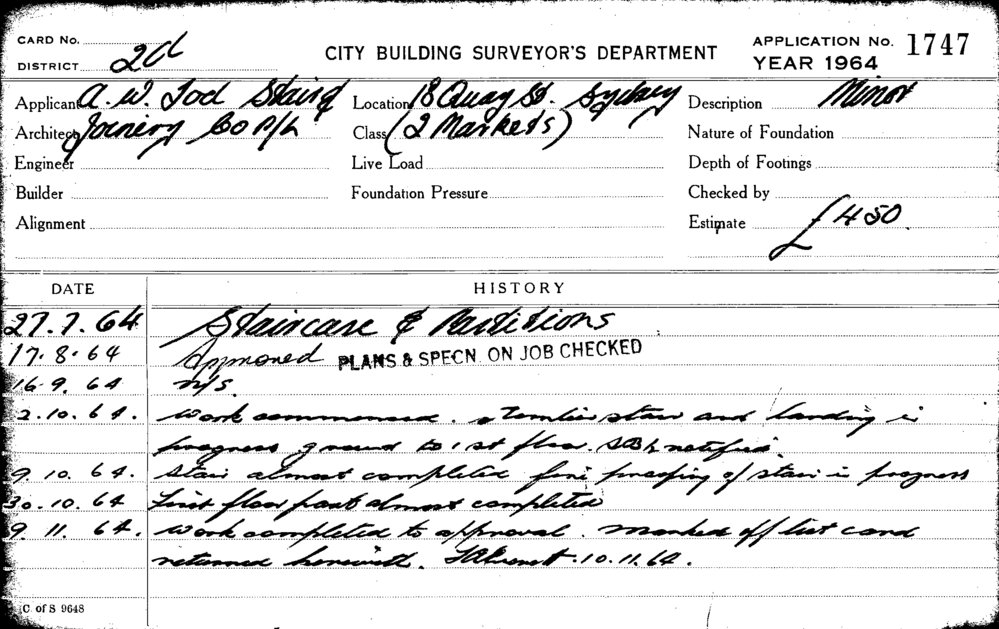 CARD No.
DISTRICT 2d
CITY BUILDING SURVEYOR'S DEPARTMENT
APPLICATION No. 1747
YEAR 1964
Applicant A. W. Tod Stairs &
Location 18 Quay St. Sydney
Description Minor
Architect Joinery Co P/L
Class (2 Markets)
Nature of Foundation
Engineer
Live Load
Depth of Footings
Builder
Foundation Pressure
Checked by
Alignment
Estimate £450.
DATE
HISTORY
27.7.64 Staircase & Partitions
17.8.64 Approved PLANS & SPECN. ON JOB CHECKED
16.9.64 n/s.
2.10.64. Work commenced. timber stair and landing in
progress ground to 1st floor. notified.
9.10.64. Stair almost completed fire proofing of stair in progress
30.10.64 First floor part almost completed
9.11.64. Work completed to approval. Marked off list card
returned herewith. 10.11.64.
C. of S 9648